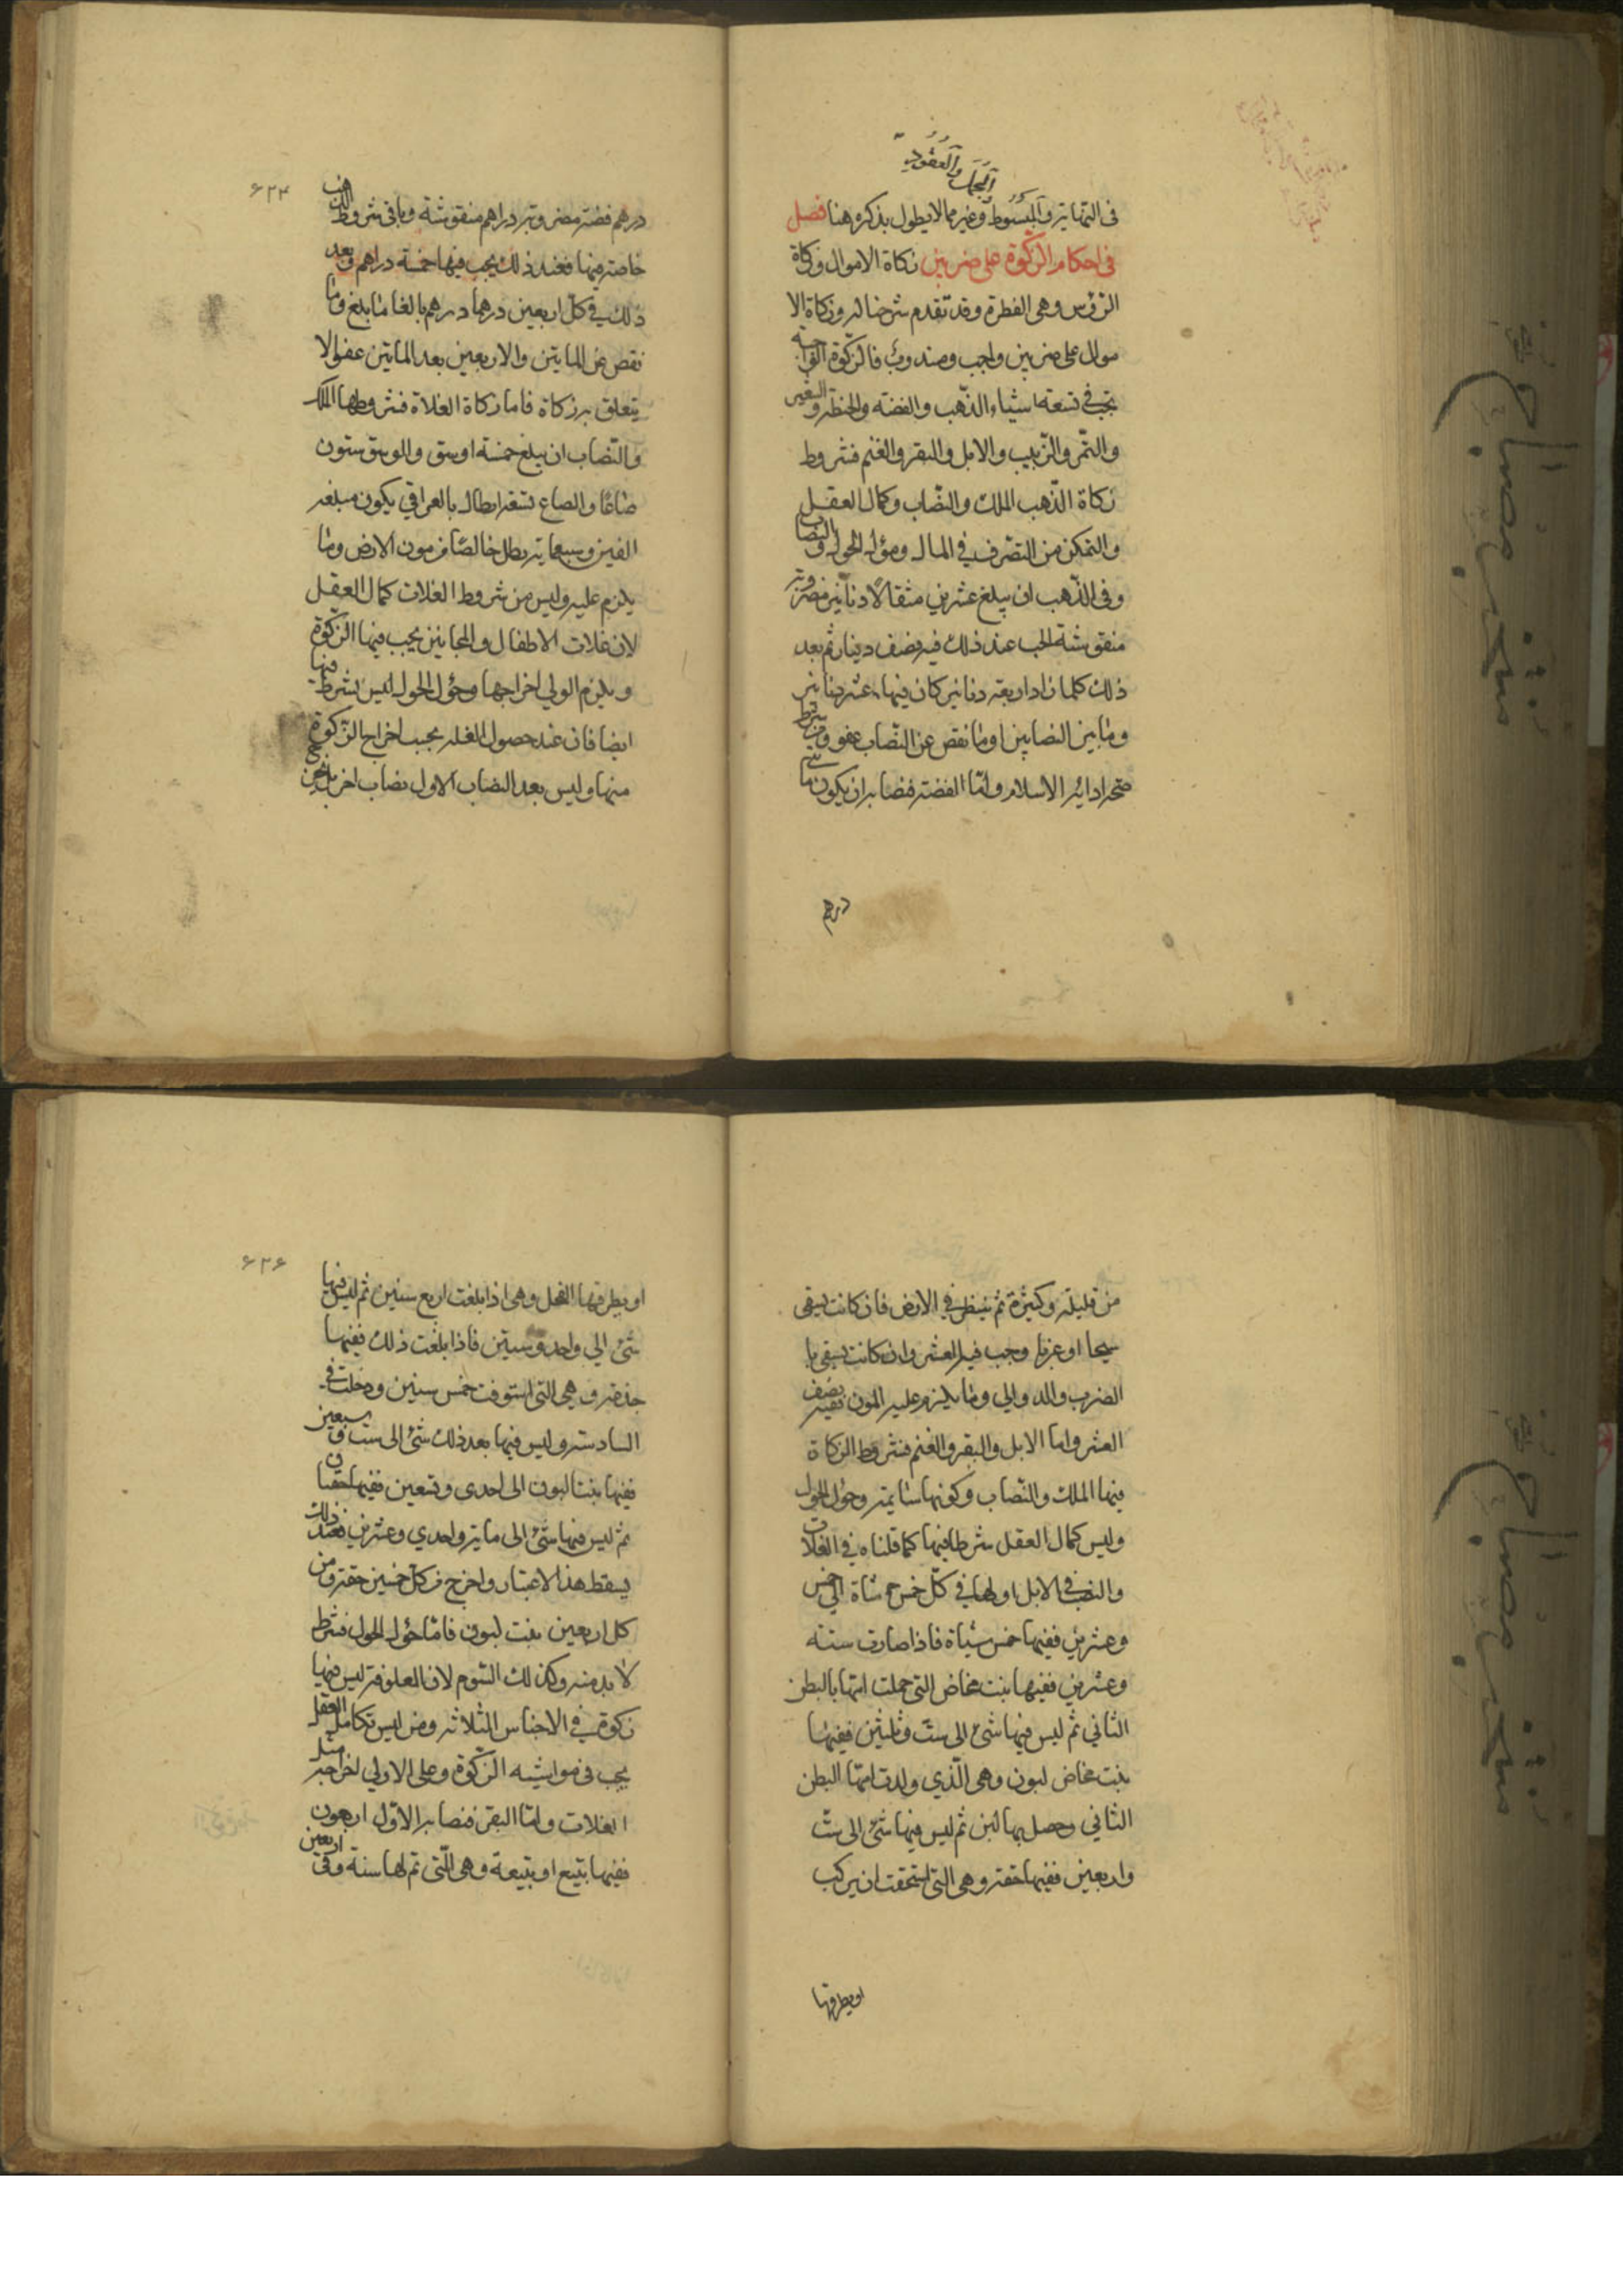 الجمل والعقود
فى النهاية والمبسوط وغيرهما لا يطول بذكره هنا فصل
فى احكام الزكوة على ضربين زكاة الاموال وزكاة
الرؤس وهى الفطرة وقد تقدم شرحنا له وزكاة الا
موال على ضربين واجب ومندوب فالزكوة الواجبة
تجب في تسعة اشياء الذهب والفضة والحنطة والشعير
والتمر والزبيب والابل والبقر والغنم فشروط
زكاة الذهب الملك والنصاب وكمال العقل
والتمكن من التصرف في المال وحؤل الحول والنصاب
وفى الذهب ان يبلغ عشرين مثقالا دنانير مضروبة
منقوشة عند ذلك فيه نصف دينار ثم بعد
ذلك كلما زاد اربعة دنانير كان فيها عشر دينار
وما بين النصابين او ما نقص عن النصاب عفو ومن شرط
صحة ادائه الاسلام واما الفضة فنصابه ان يكون مائتي
درهم
۶۲۴
درهم فضة مضروبة دراهم منقوشة وباقى شروط الذهب
حاصة فيها فعند ذلك يجب فيها خمسة دراهم وبعد
ذلك في كل اربعين درهما درهم بالغا ما بلغ وما
نقص عن المايتين والاربعين بعد المايتين عفو لا
يتعلق به زكاة فاما زكاة الغلاة فشروطها الملك
والنصاب ان يبلغ خمسة اوسق والوسق ستون
صاعا والصاع تسعة ارطال بالعراقي يكون مبلغه
الفين وسبعماية رطل خالصا من مون الارض وما
يلزم عليه وليس من شروط الغلات كمال العقل
لان غلات الاطفال والمجانين يجب فيها الزكوة
ويلزم الولي اخراجها وحؤل الحول ليس بشرط فيها
ايضا فان عند حصول الغلة يجب اخراج الزكوة
منها وليس بعد النصاب الاول نصاب اخر بل يخرج
من قليله وكثيرة ثم ينظر في الارض فان كانت تسقى
سيحا او عزيا وجب فيه العشر وان كانت تسقى با
الضرب والدوالي وما يلزم عليه المون ففيه نصف
العشر واما الابل والبقر والغنم فشروط الزكاة
فيها الملك والنصاب وكونها سايمة وحؤل الحول
وليس كمال العقل شرطا فيها كما قلناه في الغلات
والنصب في الابل اولها في كل خمس شاة الى خمس
وعشرين ففيها خمس شياة فاذا صارت ستة
وعشرين ففيها بنت مخاض التي حملت امها بالبطن
الثاني ثم ليس فيها شئ الى ست وثلثين ففيها
بنت مخاض لبون وهى الذي ولدت امها البطن
الثاني وحصل بها لبن ثم ليس فيها شئ الى ست
واربعين ففيها حقة وهى التي استحقت ان يركب
او يطرقها
۶۲۶
او يطرقها الفحل وهى اذا بلغت اربع سنين ثم ليس فيها
شئ الي واحد وستين فاذا بلغت ذلك ففيها
جذعة وهي التي استوفت خمس سنين ودخلت في
السادسة وليس فيها بعد ذلك شئ الى ست وسبعين
ففيها بنتا لبون الى احدى وتسعين ففيها حقتان
ثم ليس فيها شئ الى ماية واحدي وعشرين فعند ذلك
يسقط هذا الاعتبار واخرج من كل خمسين حقة ومن
كل اربعين بنت لبون فاما حؤل الحول فشرط
لا بد منه وكذلك السوم لان العلوفة ليس فيها
زكوة في الاجناس الثلاثة ومن ليس بكامل العقل
يجب فى مواشيه الزكوة وعلى الاولي اخراجه مثل
الغلات واما البقر فنصابه الاول اربعون
ففيها تبيع او تبيعة وهى اللتى تم لها سنة وفى اربعين